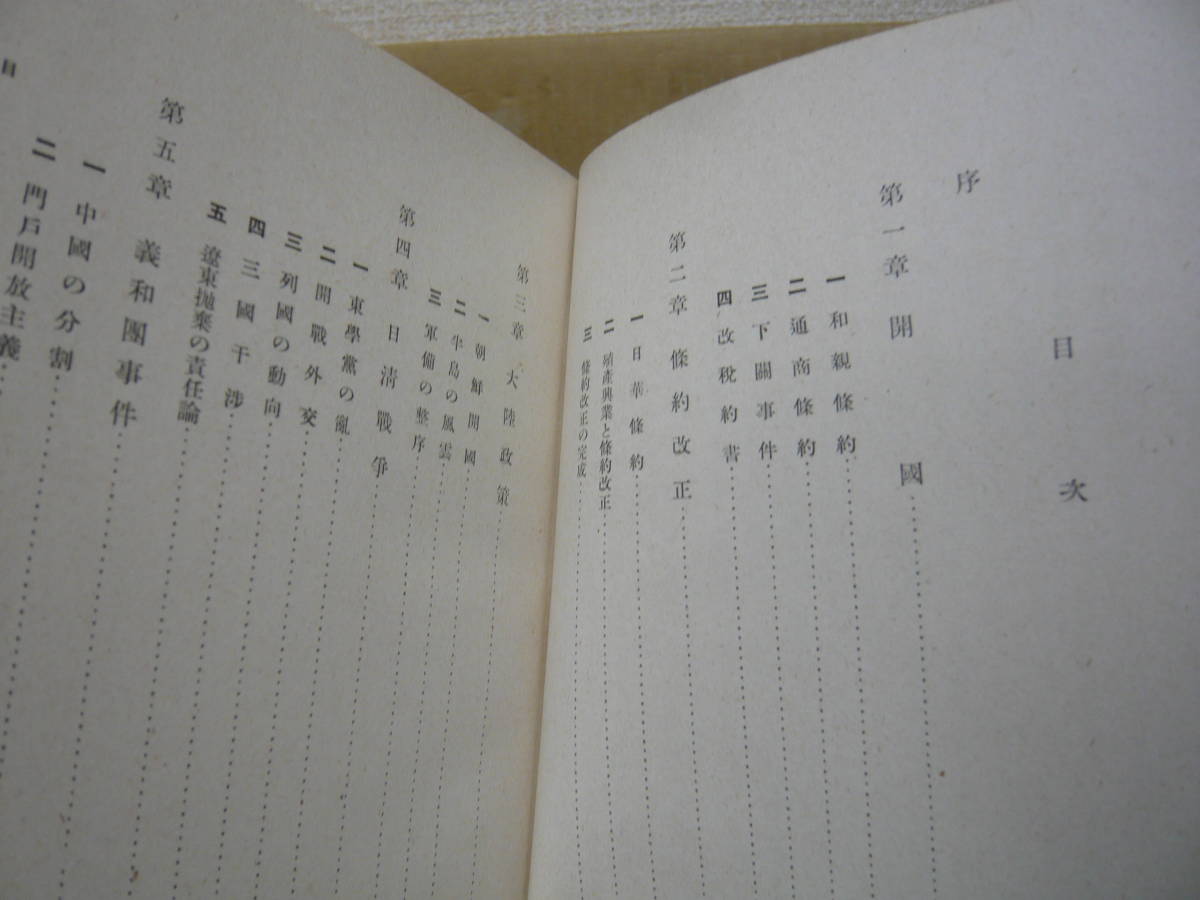 目次
序
第一章 開國
一 和親條約
二 通商條約
三 下關事件
四 改稅約書
第二章 條約改正
一 日華條約
二 殖產興業と條約改正
三 條約改正の完成
第三章 大陸政策
一 朝鮮開國
二 半島の風雲
三 軍備の整序
第四章 日淸戰爭
一 東學黨の亂
二 開戰外交
三 列國の動向
四 三國干涉
五 遼東拋棄の責任論
第五章 義和團事件
一 中國の分割
二 門戶開放主義
目